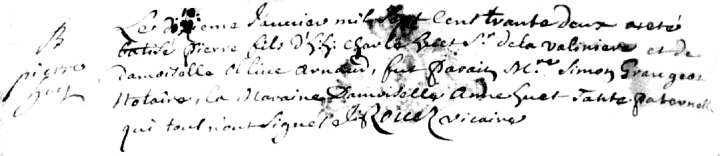 B
pierre
huet
Le dixieme Janvier mil sept cent trante deux a eté
batisé pierre fils d'h. h. Charle huet Sr. de la valiniere et de
Damoiselle Olive Arnaud, fut parain Mre Simon Grangeot
Notaire, la Maraine Damoiselle Anne huet Tante paternelle
qui tout n'ont signé vicaire